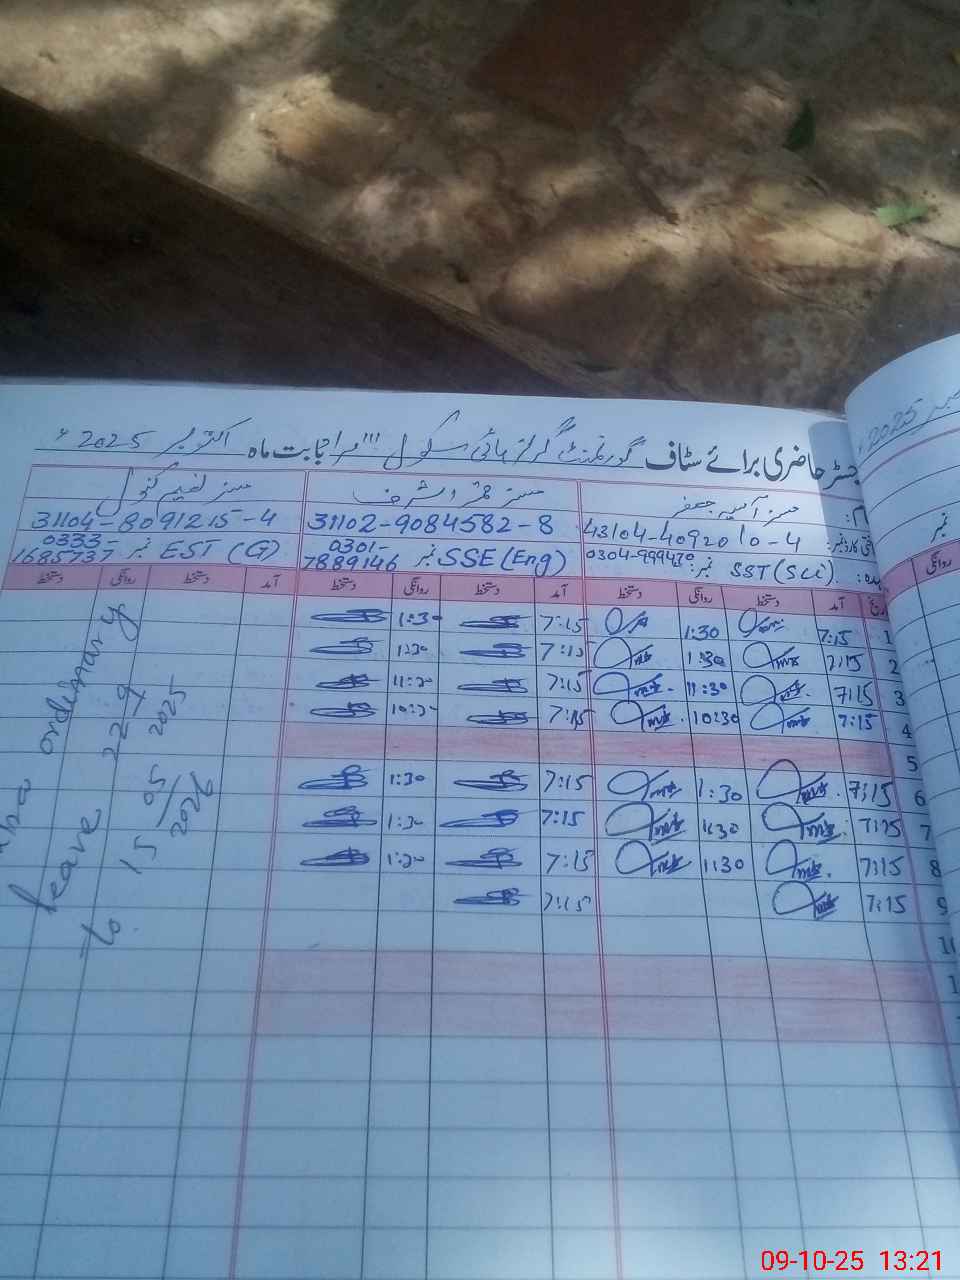 2025
حاضری برائے سٹاف گورنمنٹ گرلز ہائی سکول بابت ماہ اکتوبر 2025ء
مسز آسیہ جعفر
مسز قمر اشرف
مسز نسیم کنول
43104-4092010-4
31102-9084582-8
31104-8091215-4
SST (Sci) نمبر:
SSE (Eng) نمبر 0301-7889146
EST (G) نمبر 0333-1685737
نمبر
روانگی
آمد دستخط روانگی دستخط آمد دستخط روانگی دستخط آمد دستخط روانگی دستخط
1 7:15 1:30 7:15 1:30
2 7:15 1:30 7:15 1:30
3 7:15 11:30 7:15 11:30
4 7:15 10:30 7:15 10:30
5
6 7:15 1:30 7:15 1:30
7 7:15 1:30 7:15 1:30
8 7:15 1:30 7:15 1:30
9 7:15 7:15
leave
22-9
2025
to
15
05
2026
09-10-25 13:21